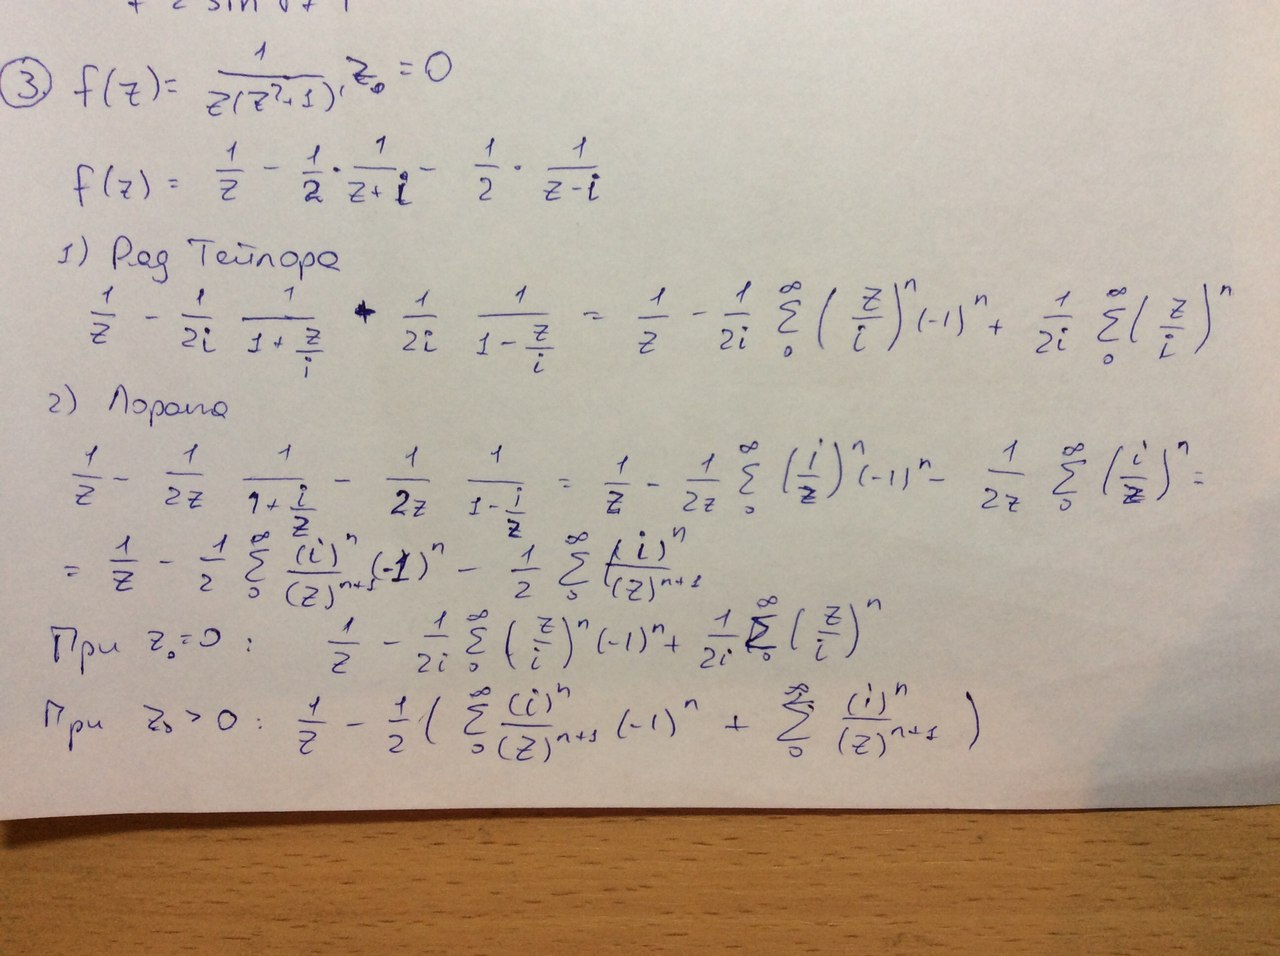 + 2 sin
③ f(z) = 1/(z(z²+1)), z₀ = 0
f(z) = 1/z - 1/2 · 1/(z+i) - 1/2 · 1/(z-i)
1) Ряд Тейлора
1/z - 1/2i 1/(1+z/i) + 1/2i 1/(1-z/i) = 1/z - 1/2i ∑₀^∞ (z/i)ⁿ (-1)ⁿ + 1/2i ∑₀^∞ (z/i)ⁿ
2) Лорана
1/z - 1/2z 1/(1+i/z) - 1/2z 1/(1-i/z) = 1/z - 1/2z ∑₀^∞ (i/z)ⁿ (-1)ⁿ - 1/2z ∑₀^∞ (i/z)ⁿ =
= 1/z - 1/2 ∑₀^∞ (i)ⁿ/(z)ⁿ⁺¹ (-1)ⁿ - 1/2 ∑₀^∞ (i)ⁿ/(z)ⁿ⁺¹
При z₀ = 0 : 1/z - 1/2i ∑₀^∞ (z/i)ⁿ (-1)ⁿ + 1/2i ∑₀^∞ (z/i)ⁿ
При z₀ > 0 : 1/z - 1/2 ( ∑₀^∞ (i)ⁿ/(z)ⁿ⁺¹ (-1)ⁿ + ∑₀^∞ (i)ⁿ/(z)ⁿ⁺¹ )